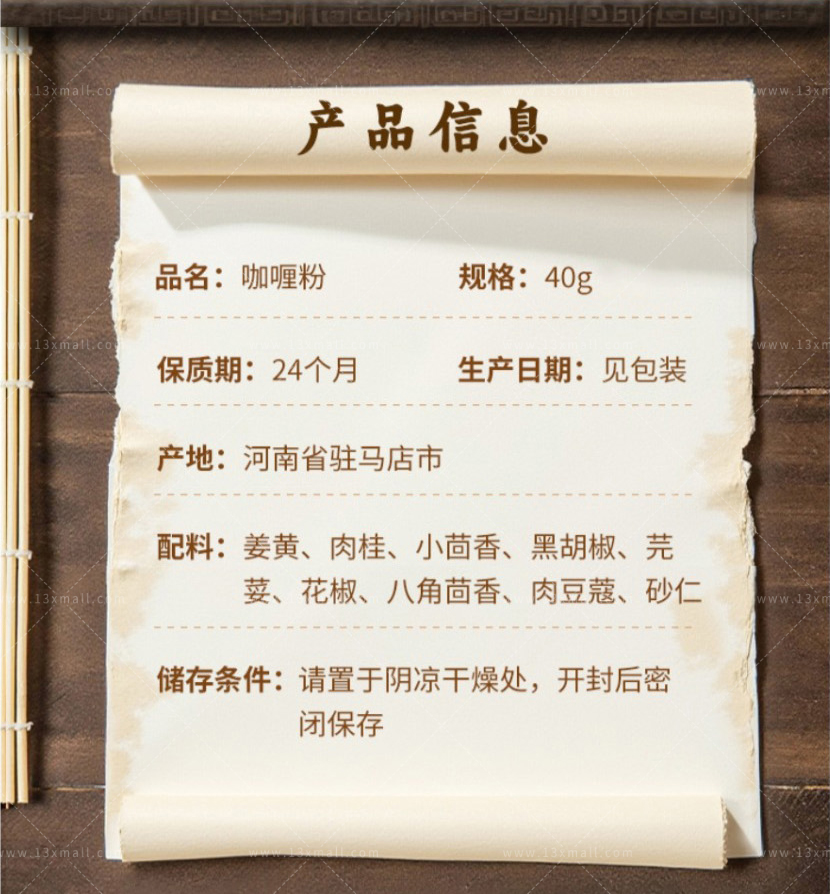 产品信息
品名：咖喱粉 规格：40g
保质期：24个月 生产日期：见包装
产地：河南省驻马店市
配料：姜黄、肉桂、小茴香、黑胡椒、芫
荽、花椒、八角茴香、肉豆蔻、砂仁
储存条件：请置于阴凉干燥处，开封后密
闭保存
www.13xmall.com